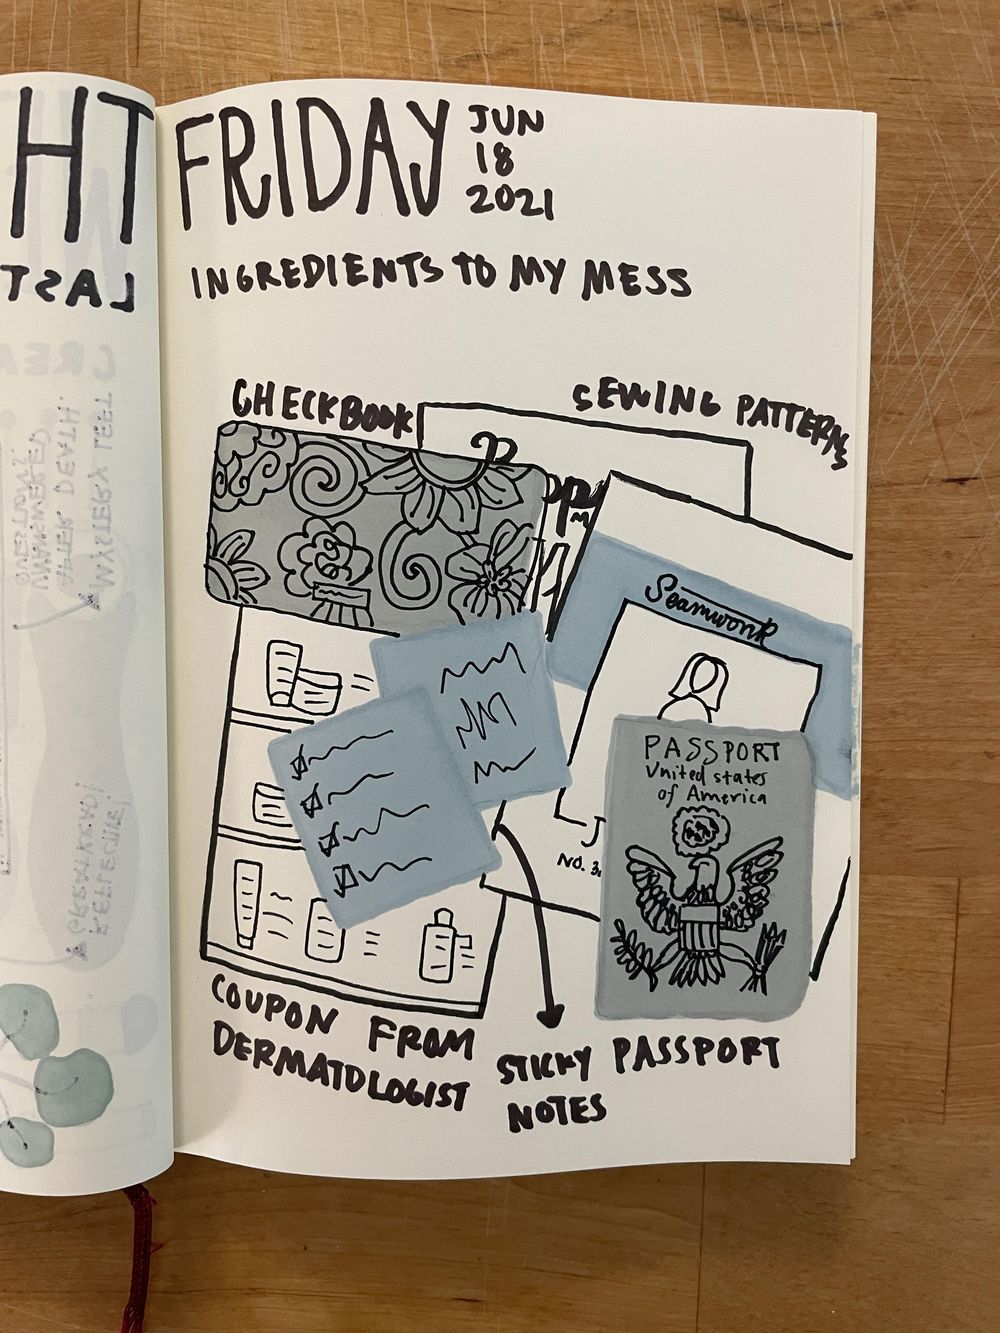 TH
LAST
MYSTERY LEFT
AFTER DEATH.
UNANSWERED
FRIDAY
JUN
18
2021
INGREDIENTS TO MY MESS
CHECKBOOK
SEWING PATTERNS
Seamwork
NO.
PASSPORT
United states
of America
COUPON FROM
DERMATOLOGIST
STICKY
NOTES
PASSPORT